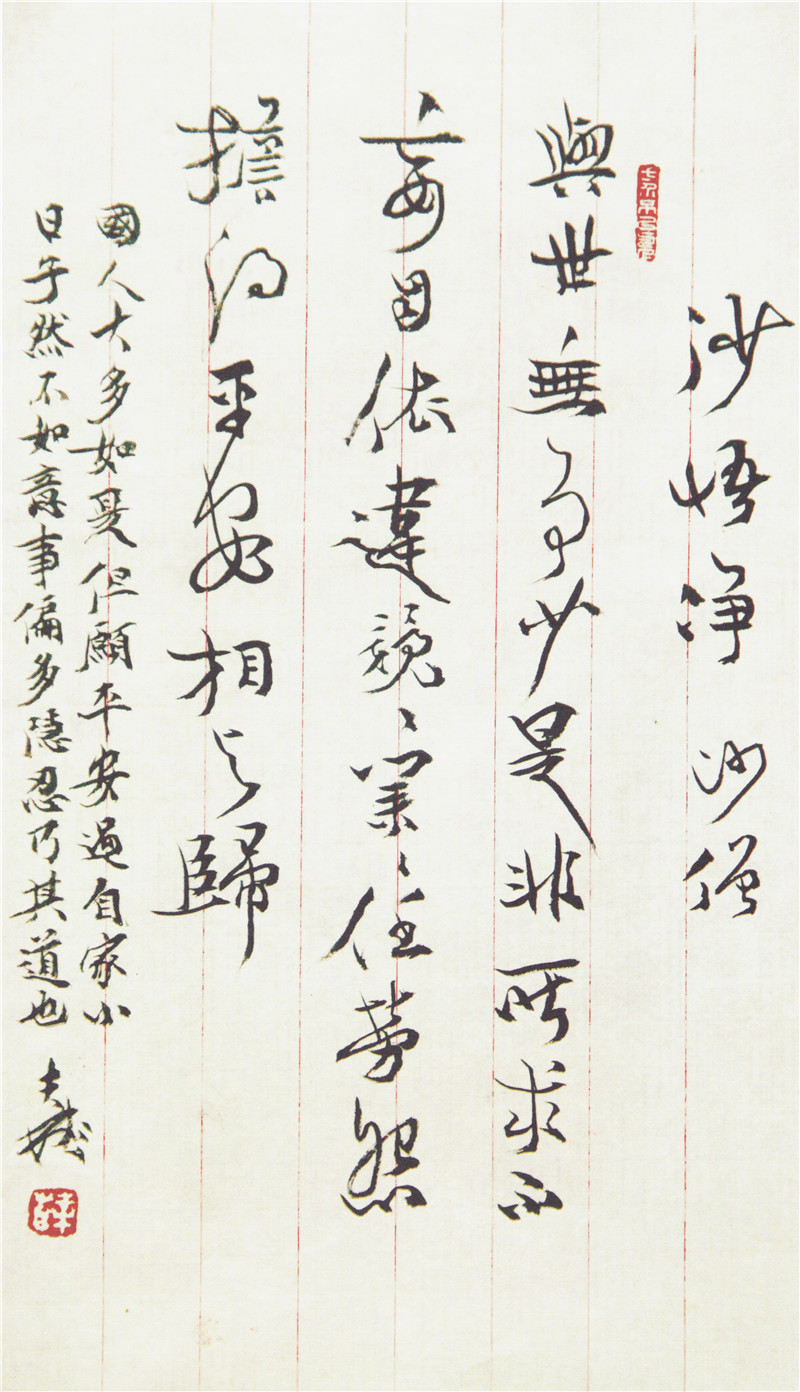 沙悟净 沙僧
與世無爭少是非所求不
妄自依違兢〻業〻任勞怨
擔得平安相与歸
國人大多如是但願平安過自家小
日子然不如意事偏多隱忍乃其道也